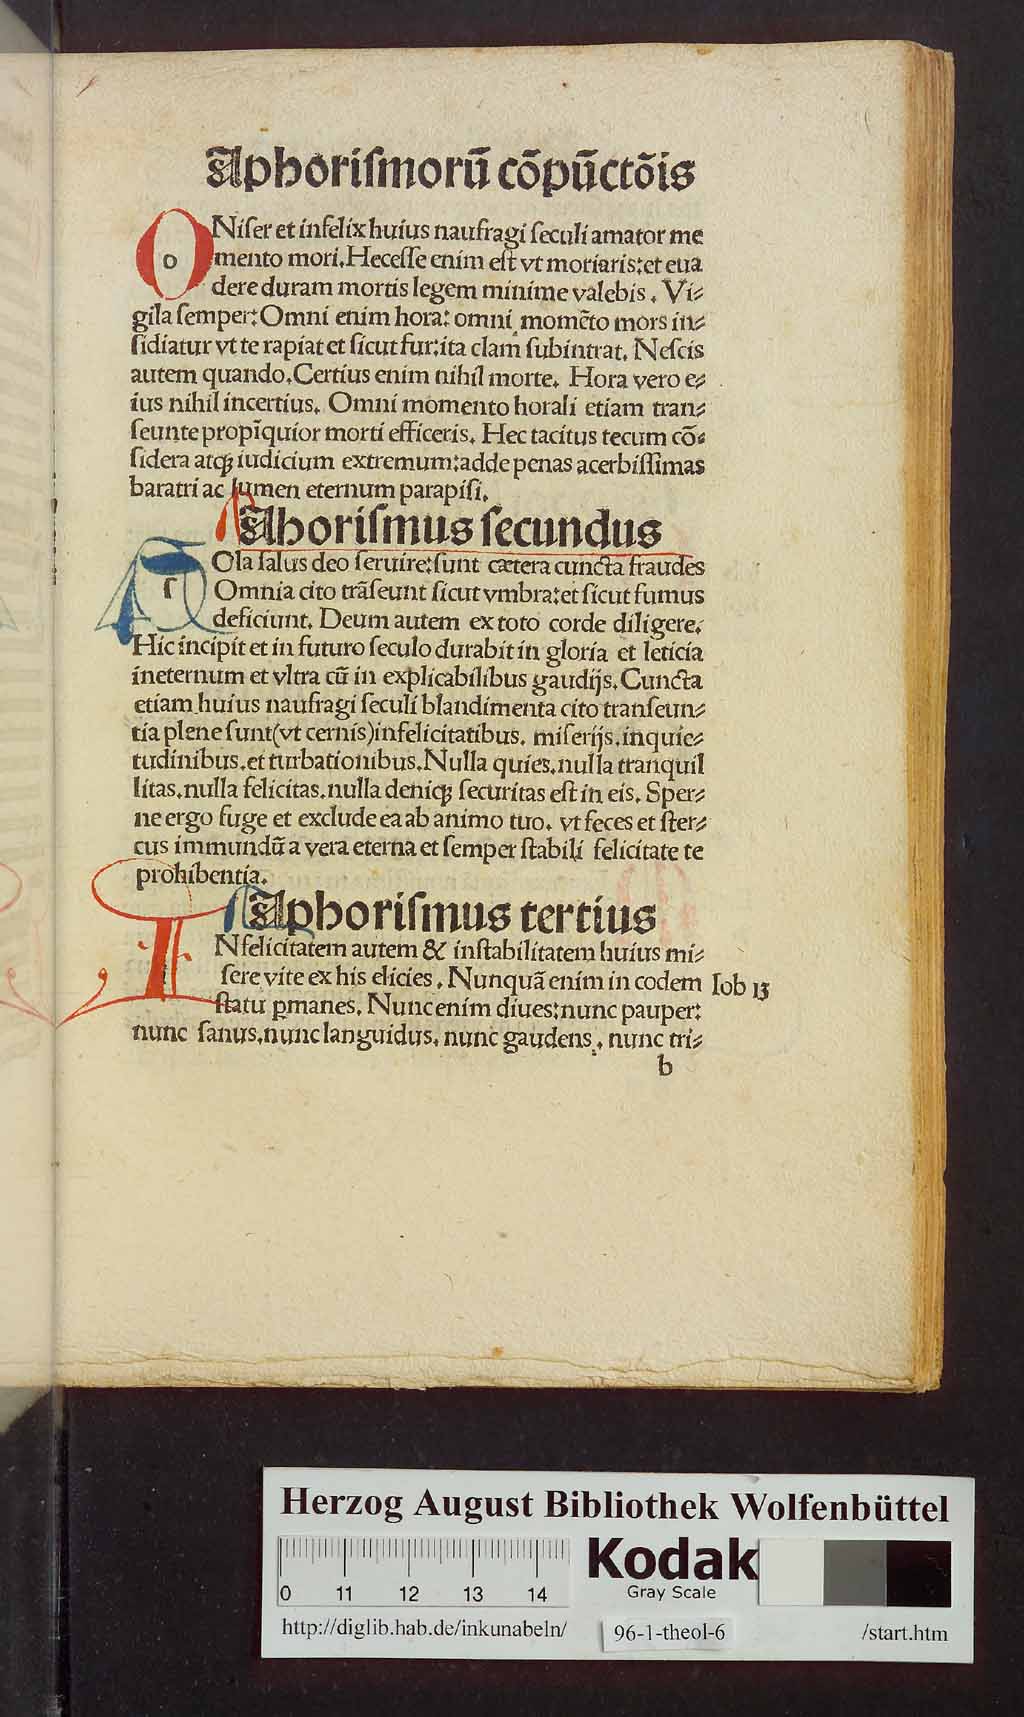 Aphoriſmorū cōpūctōis
O Niſer et infelix huius naufragi ſeculi amator me
mento mori. Heceſſe enim eſt vt moriaris: et eua
dere duram mortis legem minime valebis. Vi⸗
gila ſemper: Omni enim hora: omni momēto mors in⸗
ſidiatur vt te rapiat et ſicut fur: ita clam ſubintrat. Neſcis
autem quando. Certius enim nihil morte. Hora vero e⸗
ius nihil incertius. Omni momento horali etiam tran⸗
ſeunte propīquior morti efficeris. Hec tacitus tecum cō⸗
ſidera atqꝫ iudicium extremum: adde penas acerbiſſimas
baratri ac lumen eternum parapiſi.
Ahoriſmus ſecundus
ſ Ola ſalus deo ſeruire: ſunt cætera cuncta fraudes
Omnia cito trāſeunt ſicut vmbra: et ſicut fumus
deficiunt. Deum autem ex toto corde diligere.
Hic incipit et in futuro ſeculo durabit in gloria et leticia
ineternum et vltra cū in explicabilibus gaudijs. Cuncta
etiam huius naufragi ſeculi blandimenta cito tranſeun⸗
tia plene ſunt (vt cernis) infelicitatibus. miſerijs. inquie⸗
tudinibus. et turbationibus. Nulla quies. nulla tranquil
litas. nulla felicitas. nulla deniqꝫ ſecuritas eſt in eis. Sper⸗
ne ergo fuge et exclude ea ab animo tuo. vt feces et ſter⸗
cus immundū a vera eterna et ſemper ſtabili felicitate te
prohibentia.
Aphoriſmus tertius
I Nfelicitatem autem & inſtabilitatem huius mi⸗
ſere vite ex his elicies. Nunquā enim in eodem Iob 13
ſtatu ꝑmanes. Nunc enim diues: nunc pauper:
nunc ſanus. nunc languidus. nunc gaudens. nunc tri⸗
b
Herzog August Bibliothek Wolfenbüttel
0 11 12 13 14
Kodak
Gray Scale
http://diglib.hab.de/inkunabeln/ 96-1-theol-6 /start.htm